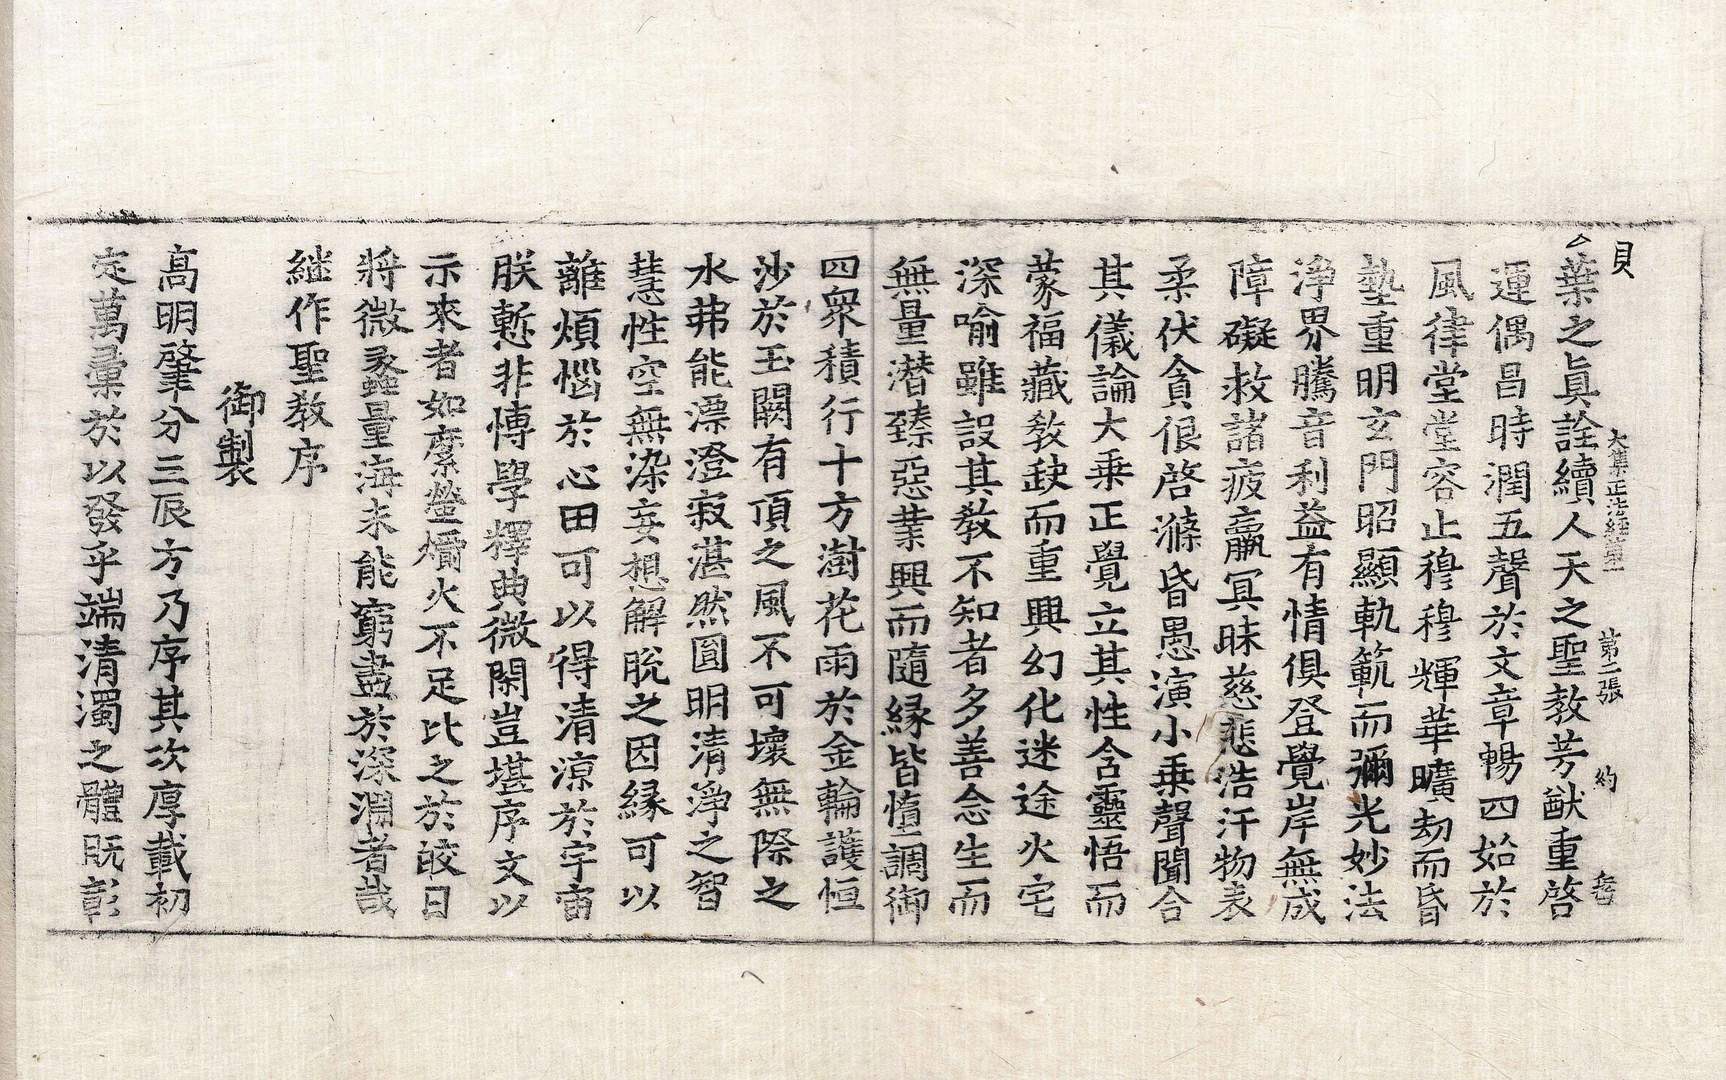 貝
大集正法經第一 第二張 約
葉之眞詮續人天之聖教芳猷重啓
運偶昌時潤五聲於文章暢四始於
風律堂堂容止穆穆輝華曠劫而昏
墊重明玄門昭顯軌範而彌光妙法
淨界騰音利益有情俱登覺岸無成
障礙救諸疲羸冥昧慈悲浩汗物表
柔伏貪很啓滌昏愚演小乗聲聞合
其儀論大乗正覺立其性含靈悟而
蒙福藏教缺而重興幻化迷途火宅
深喻雖設其教不知者多善念生而
無量潜臻惡業興而隨縁皆憜調御
四衆積行十方澍花雨於金輪護恒
沙於玉闕有頂之風不可壞無際之
水弗能漂澄寂湛然圓明清淨之智
慧性空無染妄想解脫之因縁可以
離煩惱於心田可以得清涼於宇宙
朕慙非博學釋典微閑豈堪序文以
示來者如縻螢爝火不足比之於皎日
將微蠡量海未能窮盡於深淵者哉
継作聖教序
御製
高明肇分三辰方乃序其次厚載初
定萬彙於以發乎端清濁之體旣彰